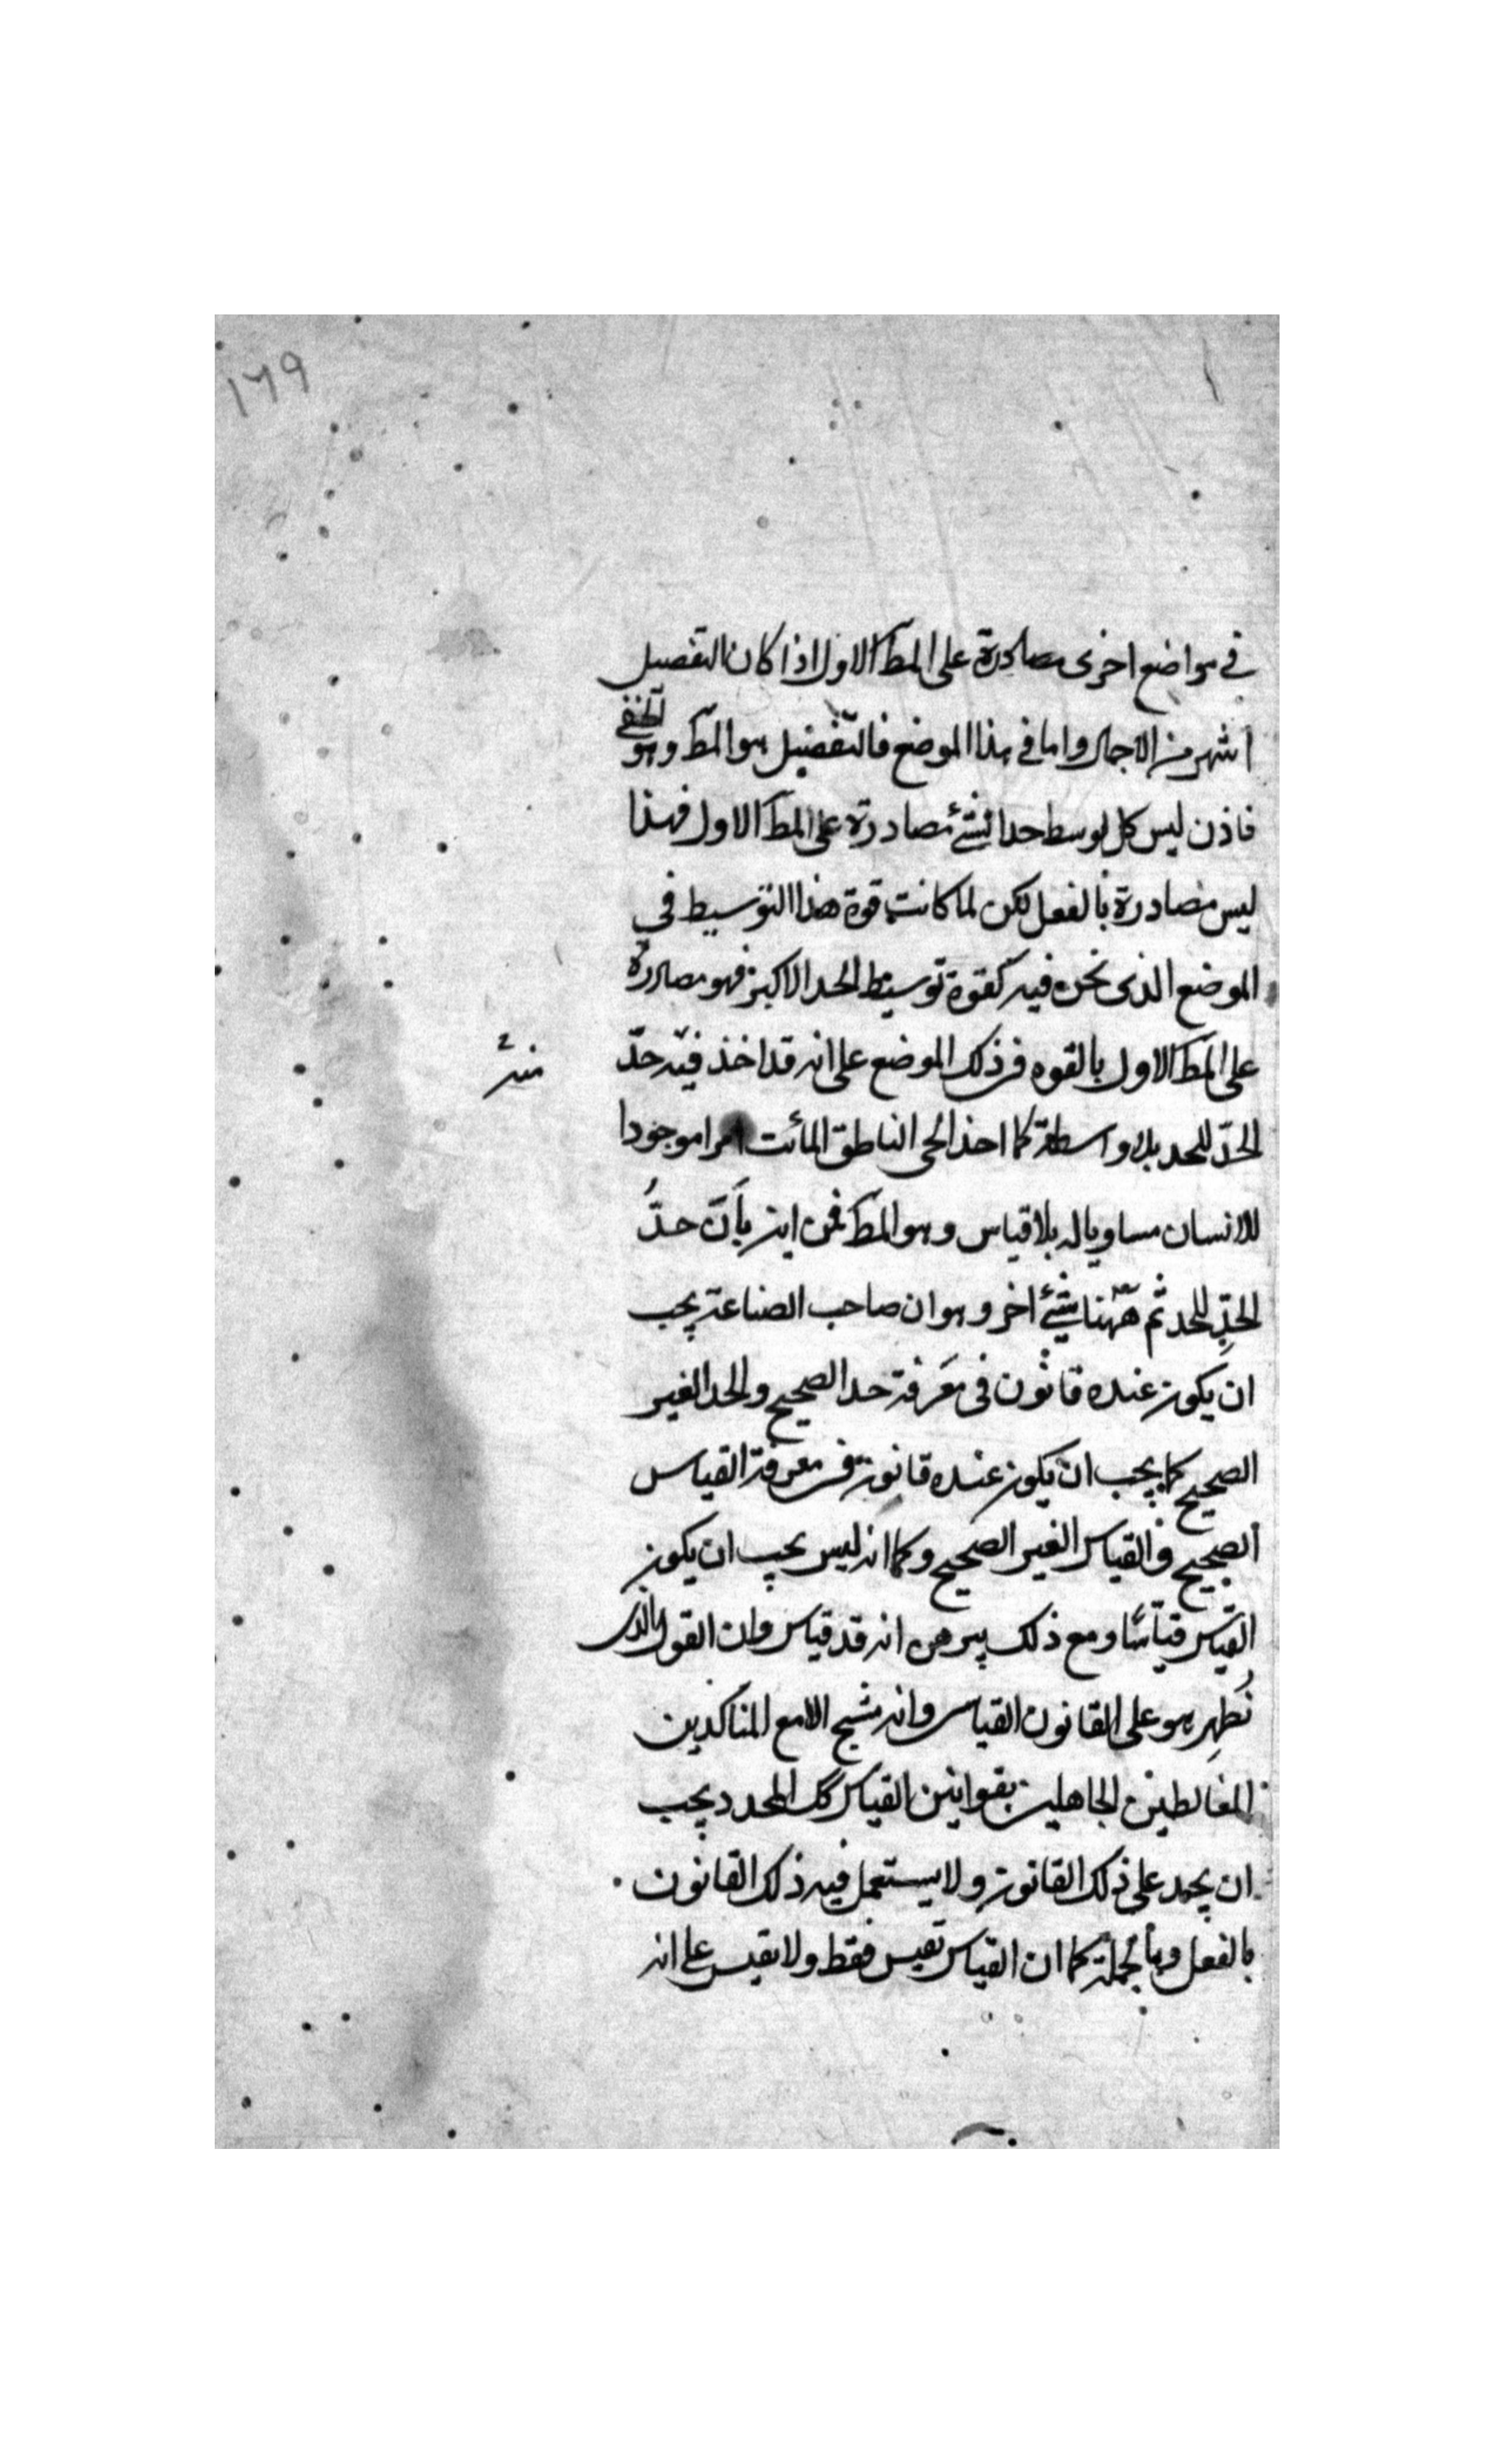 ١٦٩
في مواضع اخرى مصادرة على المط الاول اذا كان التفصيل
اشهر من الاجمال واما في هذا الموضع فالتفصيل هو المط وهو الخفي
فاذن ليس كل توسط حد لشئ مصادرة على المط الاول فهذا
ليس مصادرة بالفعل لكن لما كانت قوة هذا التوسيط في
الموضع الذى نحن فيه كقوة توسيط الحد الاكبر فهو مصادرة
على المط الاول بالقوه في ذلك الموضع على انه قد اخذ فيه حدّ
الحدّ للحد بلا واسطة كما اخذ الحى الناطق المائت امرا موجودا
للانسان مساويا له بلا قياس وهو المط فمن اين بأنّ حدُّ
الحدِّ للحد ثم ههنا شئ اخر وهو ان صاحب الصناعة يجب
ان يكون عنده قانون في معرفة حد الصحيح والحد الغير
الصحيح كما يجب ان يكون عنده قانون في معرفة القياس
الصحيح والقياس الغير الصحيح وكما انه ليس يجب ان يكون
القياس قياسًا ومع ذلك يبرهن انه قد قياس وان القول الذى
نُظِر هو على القانون القياس وانه منتج الا مع المناكدين
المغالطين الجاهلين بقوانين القياس كك المحدد يجب
ان يحد على ذلك القانون ولا يستعمل فيه ذلك القانون
بالفعل وبالجملة كما ان القياس تقيس فقط ولا تقيس على انه